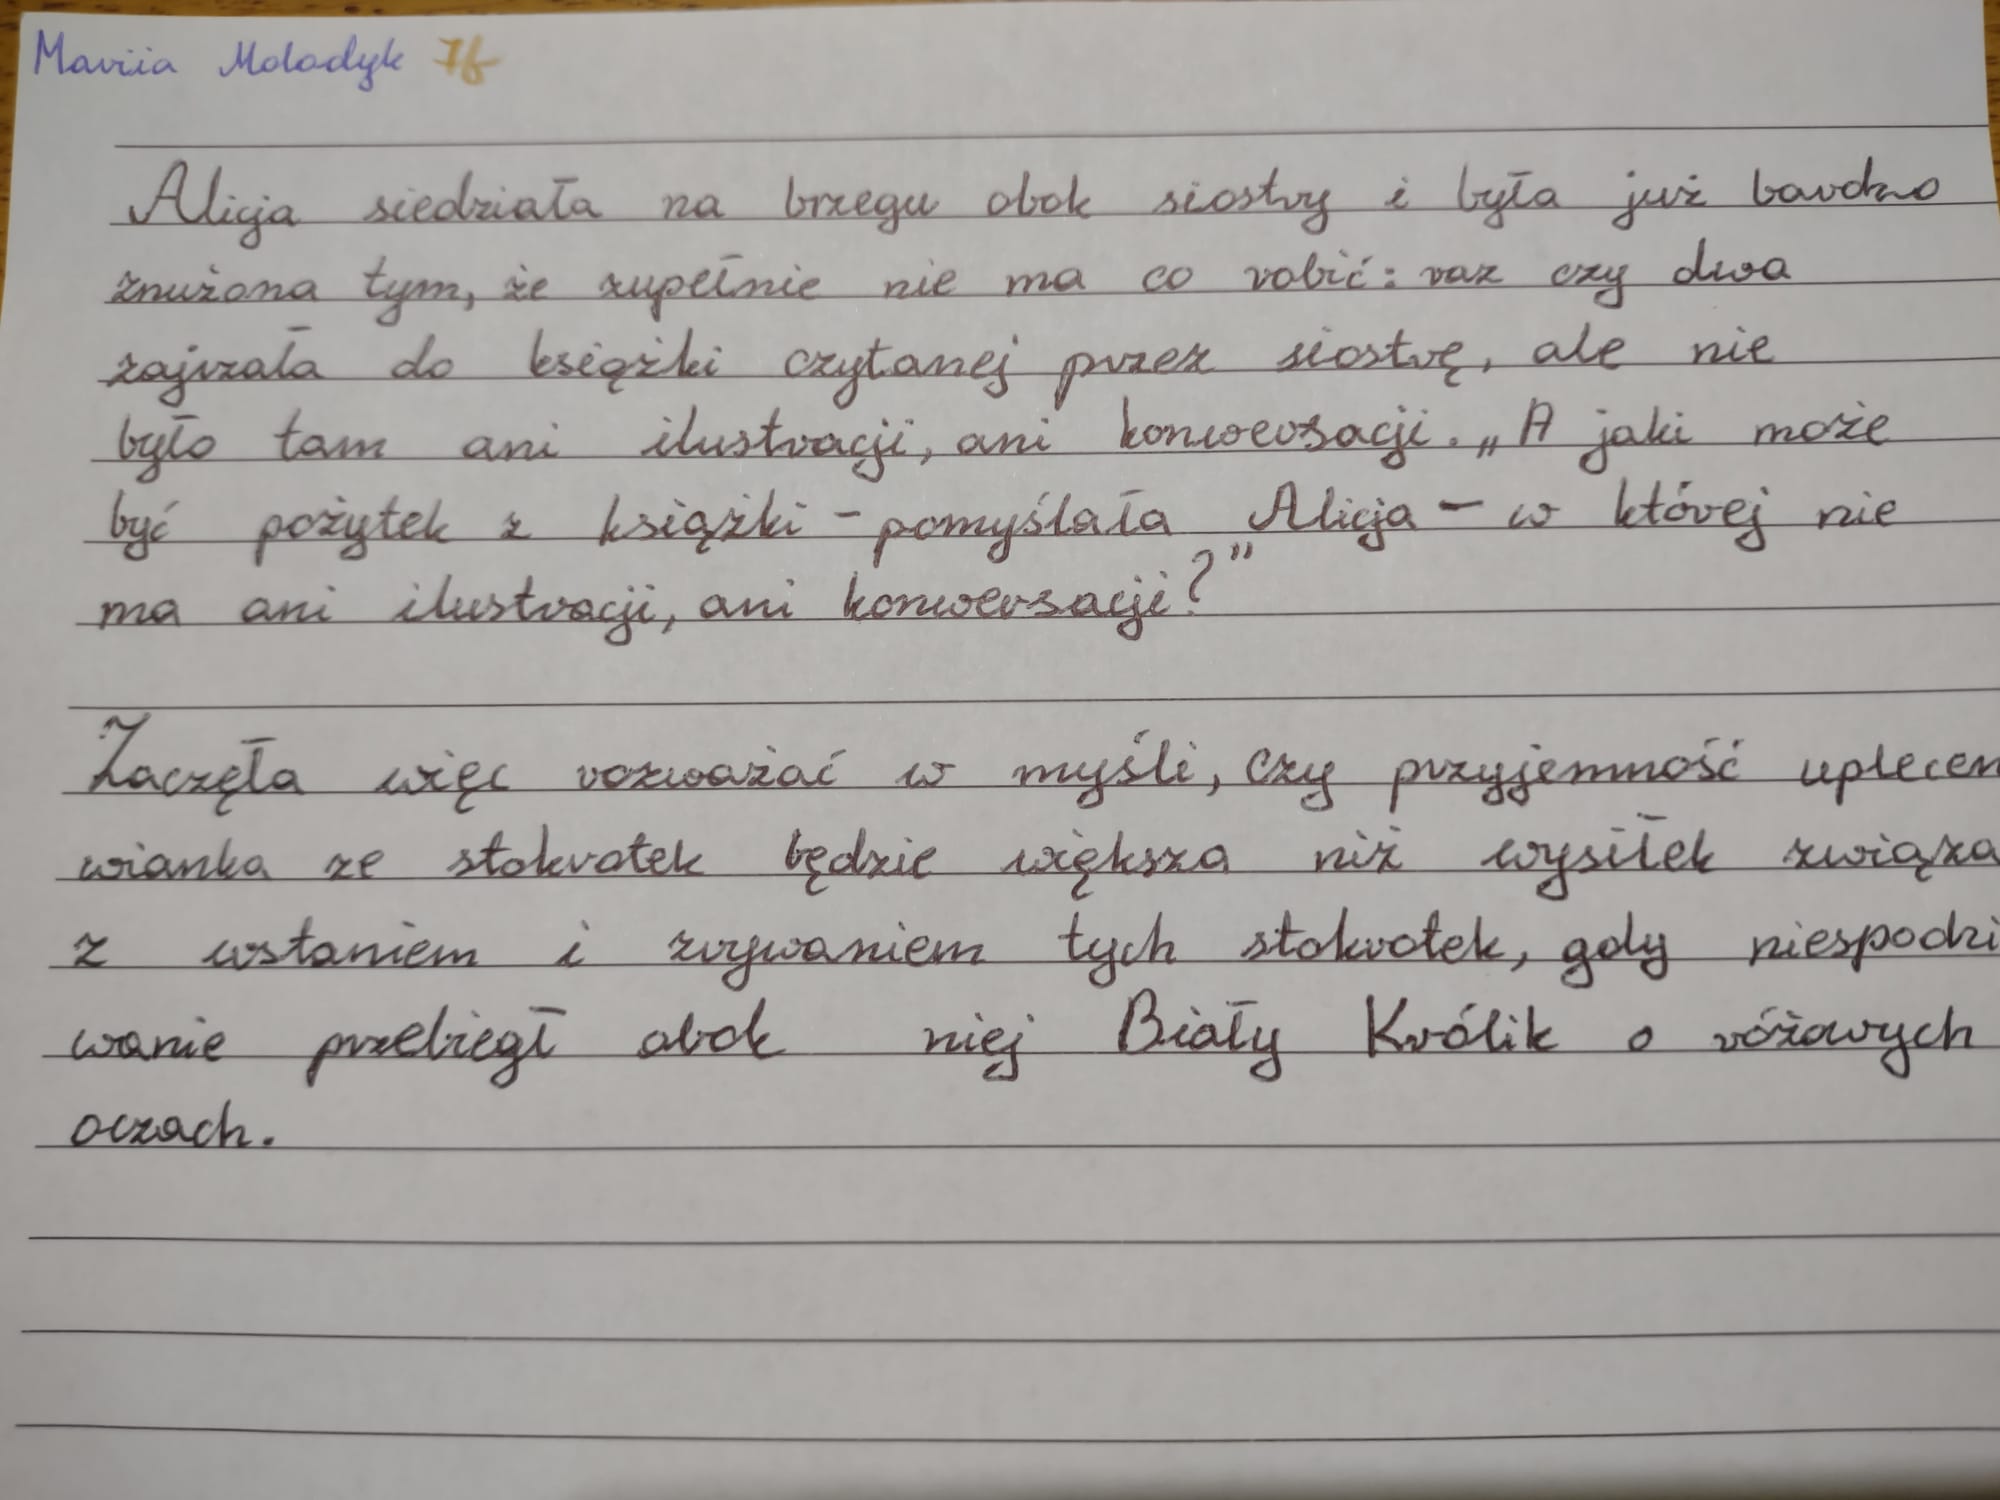 Mariia Moladyk 7f
Alicja siedziała na brzegu obok siostry i była już bardzo
znużona tym, że zupełnie nie ma co robić: raz czy dwa
zajrzała do książki czytanej przez siostrę, ale nie
było tam ani ilustracji, ani konwersacji. „A jaki może
być pożytek z książki - pomyślała Alicja - w której nie
ma ani ilustracji, ani konwersacji?”
Zaczęła więc rozważać w myśli, czy przyjemność uplecen
wianka ze stokrotek będzie większa niż wysiłek związa
z wstaniem i zrywaniem tych stokrotek, gdy niespodzi
wanie przebiegł obok niej Biały Królik o różowych
oczach.